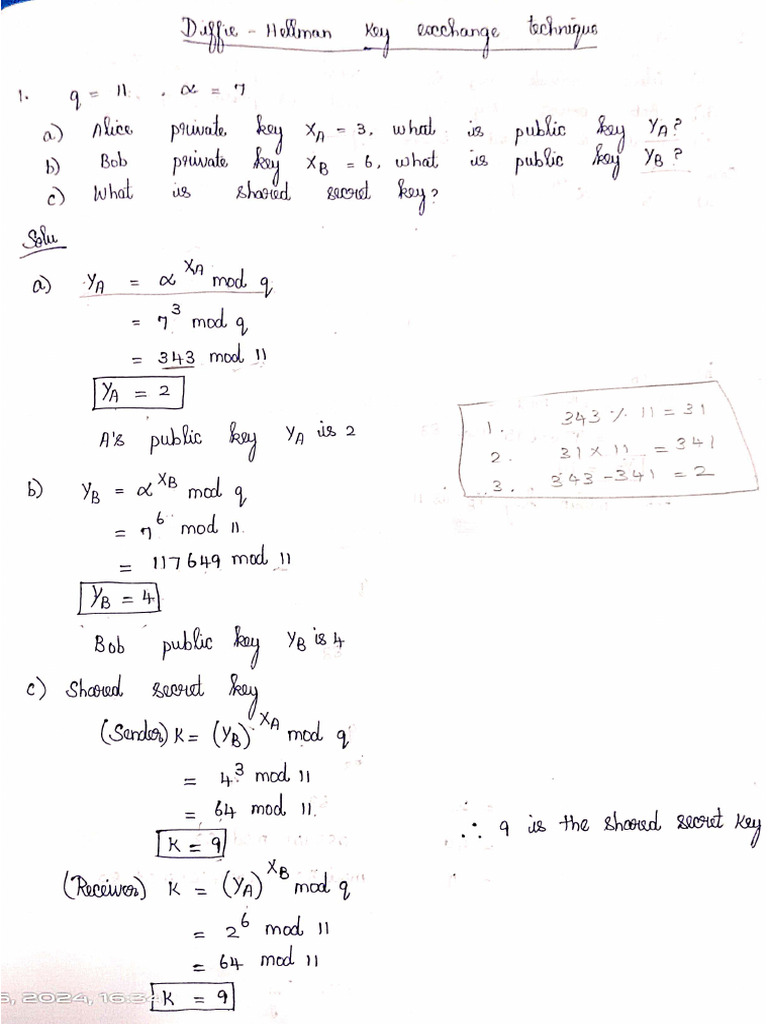 Diffie - Hellman Key exchange technique
1. q = 11 , α = 7
a) Alice private key X_A = 3, what is public key Y_A?
b) Bob private key X_B = 6, what is public key Y_B?
c) What is shared secret key?
Solu
a) Y_A = α^X_A mod q
= 7^3 mod q
= 343 mod 11
Y_A = 2
A's public key Y_A is 2
1. 343 % 11 = 31
2. 31 × 11 = 341
3. 343 - 341 = 2
b) Y_B = α^X_B mod q
= 7^6 mod 11
= 117649 mod 11
Y_B = 4
Bob public key Y_B is 4
c) Shared secret key
(Sender) K = (Y_B)^X_A mod q
= 4^3 mod 11
= 64 mod 11
K = 9
∴ 9 is the shared secret key
(Receiver) K = (Y_A)^X_B mod q
= 2^6 mod 11
= 64 mod 11
K = 9
, 2024, 16:34